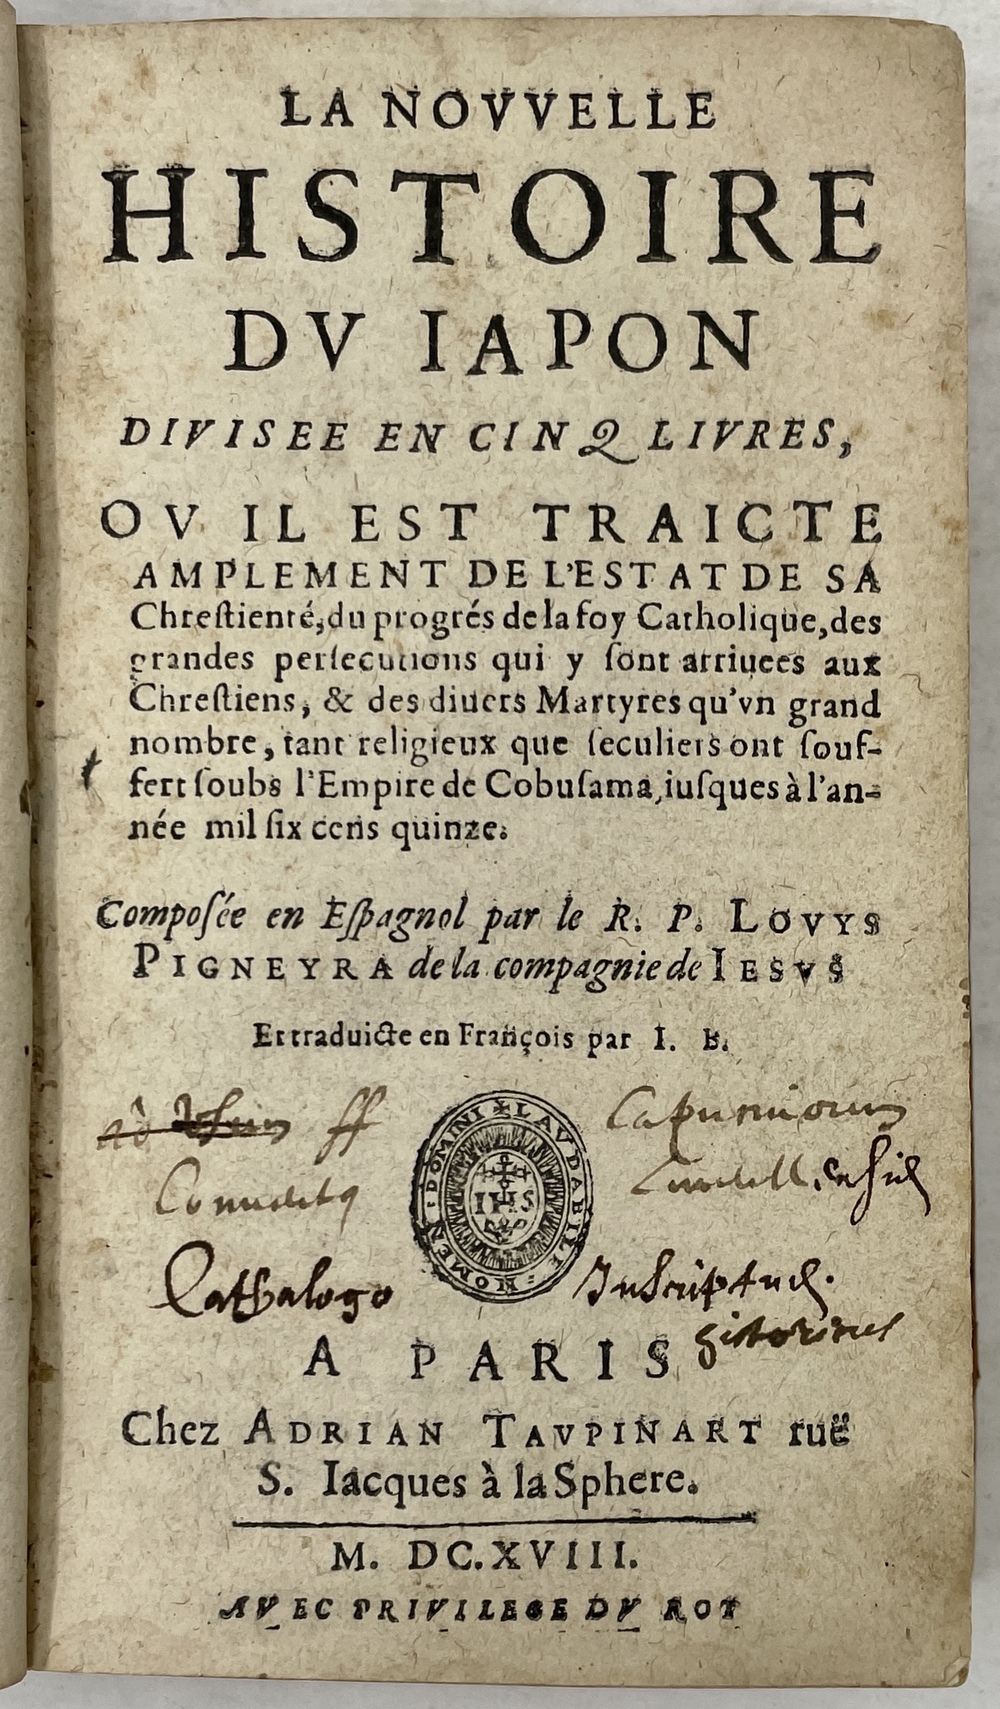 LA NOVVELLE
HISTOIRE
DV IAPON
DIVISEE EN CINQ LIVRES,
OV IL EST TRAICTE
AMPLEMENT DE L'ESTAT DE SA
Chreſtienté, du progrés de la foy Catholique, des
grandes perſecutions qui y ſont arriuees aux
Chreſtiens, & des diuers Martyres qu'vn grand
nombre, tant religieux que ſeculiers ont ſouf-
fert ſoubs l'Empire de Cobuſama, iuſques à l'an-
née mil ſix cens quinze.
Compoſée en Eſpagnol par le R. P. LOVYS
PIGNEYRA de la compagnie de IESVS
Et traduicte en François par I. B.
ad usum ff Capucinorum
Conuentus
NOMEN DOMINI LAVDABILE
IHS
Cathalogo Inscriptus.
historicus
A PARIS
Chez ADRIAN TAVPINART ruë
S. Iacques à la Sphere.
M. DC. XVIII.
AVEC PRIVILEGE DV ROY